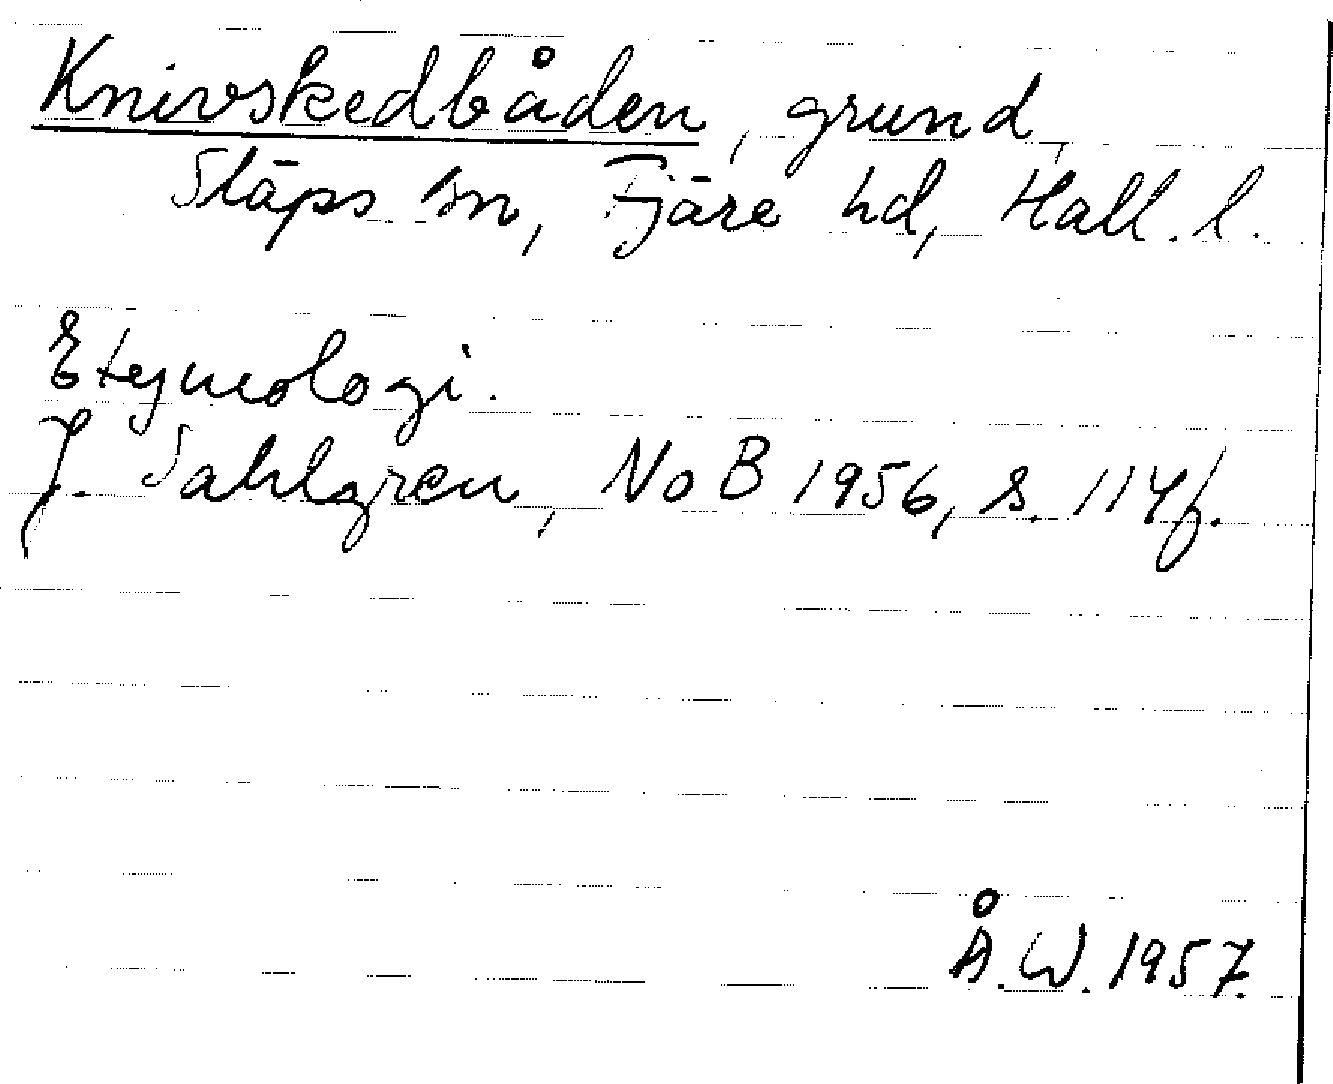 Knivskedbåden, grund,
Släps sn, Fjäre hd, Hall. l.
Etymologi.
J. Sahlgren, NoB 1956, s. 114f.
Å.W. 1957.